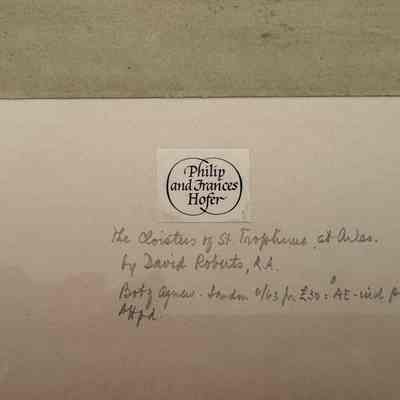 Philip
and Frances
Hofer
The Cloisters of St. Trophimus, at Arles.
by David Roberts, R.A.
Bot of Agnew - London 6/63 for £30 =